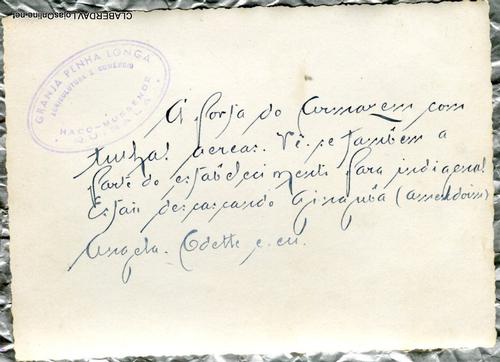 CLABERDAV.LojasOnline-net
GRANJA PENHA LONGA
AGRICULTURA E COMÉRCIO
A porta do Armazem com
tulhas aereas. Vê-se tambêm a
parte do estabelecimento para indigenas
Estão descascando ginguba (amendoim)
Angela. Odette e eu.